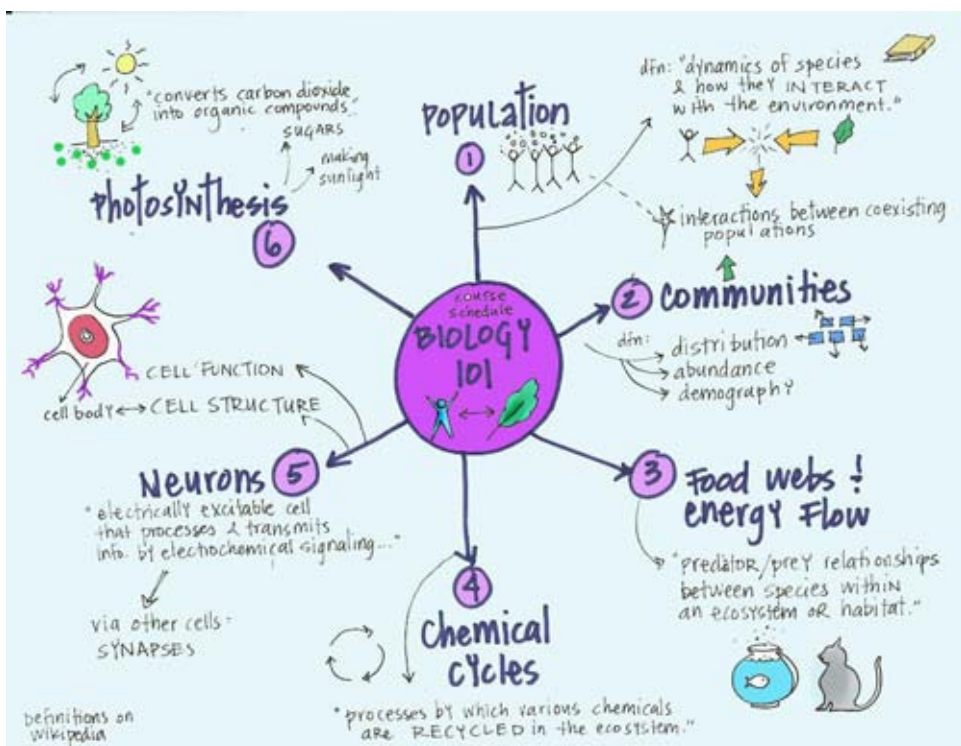 course
schedule
BIOLOGY
101
Population
1
dfn: "dynamics of species
& how they INTERACT
with the environment."
interactions between coexisting
populations
2 Communities
dfn:
distribution
abundance
demography
3 Food webs &
energy Flow
"predator/prey relationships
between species within
an ecosystem or habitat."
4
Chemical
cycles
"processes by which various chemicals
are RECYCLED in the ecosystem."
Neurons 5
CELL FUNCTION
cell body CELL STRUCTURE
"electrically excitable cell
that processes & transmits
info. by electrochemical signaling..."
via other cells =
SYNAPSES
Photosynthesis
6
"converts carbon dioxide
into organic compounds"
SUGARS
making
sunlight
definitions on
wikipedia